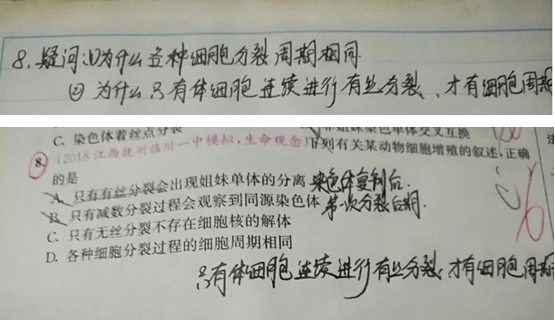 8.疑问:①为什么各种细胞分裂周期相同
②为什么只有体细胞连续进行有丝分裂、才有细胞周期
C. 染色体着丝点分裂
妹染色单体交叉互换
8.(2018江西抚州临川一中模拟,生命观念)下列有关某动物细胞增殖的叙述,正确
的是
A. 只有有丝分裂会出现姐妹单体的分离 染色体复制后
B. 只有减数分裂过程会观察到同源染色体 第一次分裂后期.
C. 只有无丝分裂不存在细胞核的解体
D. 各种细胞分裂过程的细胞周期相同
只有体细胞连续进行有丝分裂、才有细胞周期